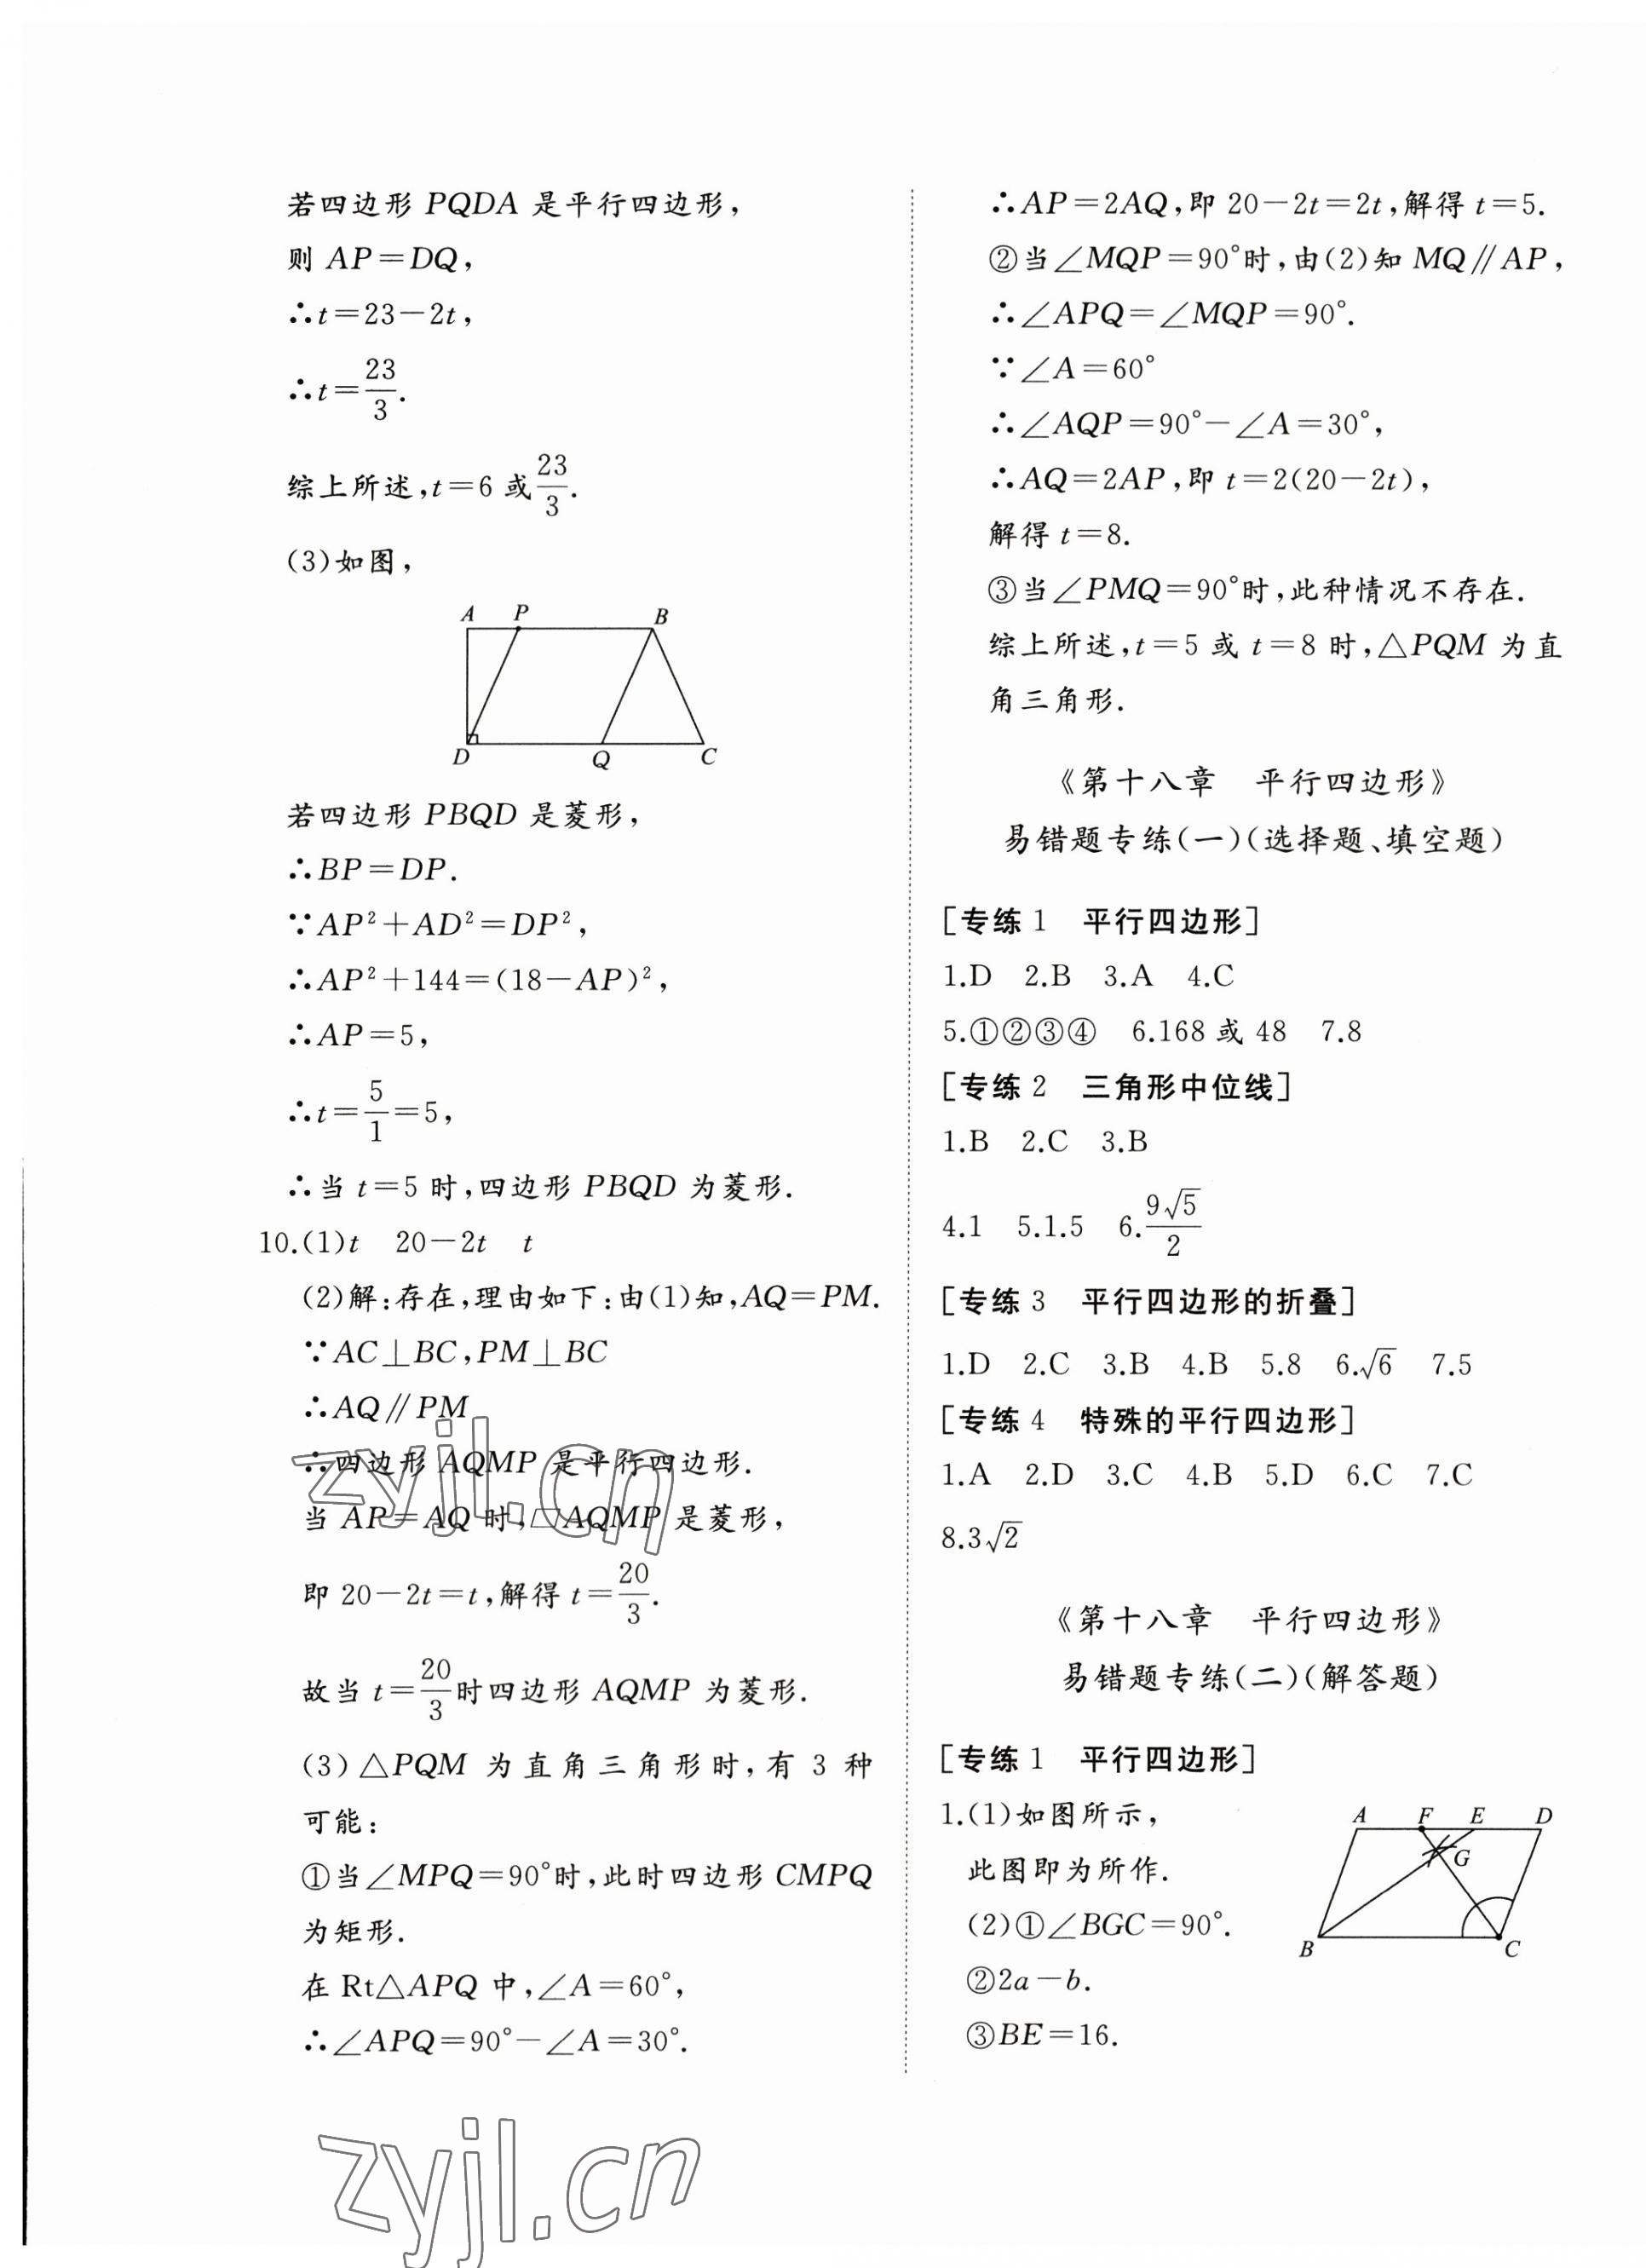 若四边形 PQDA 是平行四边形，
则 AP=DQ，
∴t=23-2t，
∴t=23/3.
综上所述，t=6 或23/3.
(3)如图，
A P B
D Q C
若四边形 PBQD 是菱形，
∴BP=DP.
∵AP²+AD²=DP²，
∴AP²+144=(18-AP)²，
∴AP=5，
∴t=5/1=5，
∴当 t=5 时，四边形 PBQD 为菱形.
10.(1)t 20-2t t
(2)解：存在，理由如下：由(1)知，AQ=PM.
∵AC⊥BC，PM⊥BC
∴AQ∥PM
∴四边形 AQMP 是平行四边形.
当 AP=AQ 时，▱AQMP 是菱形，
即 20-2t=t，解得 t=20/3.
故当 t=20/3时四边形 AQMP 为菱形.
(3)△PQM 为直角三角形时，有 3 种
可能：
①当∠MPQ=90°时，此时四边形 CMPQ
为矩形.
在 Rt△APQ 中，∠A=60°，
∴∠APQ=90°-∠A=30°.
zyjl.cn
zyjl.cn
∴AP=2AQ，即 20-2t=2t，解得 t=5.
②当∠MQP=90°时，由(2)知 MQ∥AP，
∴∠APQ=∠MQP=90°.
∵∠A=60°
∴∠AQP=90°-∠A=30°，
∴AQ=2AP，即 t=2(20-2t)，
解得 t=8.
③当∠PMQ=90°时，此种情况不存在.
综上所述，t=5 或 t=8 时，△PQM 为直
角三角形.
《第十八章 平行四边形》
易错题专练(一)(选择题、填空题)
[专练 1 平行四边形]
1.D 2.B 3.A 4.C
5.①②③④ 6.168 或 48 7.8
[专练 2 三角形中位线]
1.B 2.C 3.B
4.1 5.1.5 6.9√5/2
[专练 3 平行四边形的折叠]
1.D 2.C 3.B 4.B 5.8 6.√6 7.5
[专练 4 特殊的平行四边形]
1.A 2.D 3.C 4.B 5.D 6.C 7.C
8.3√2
《第十八章 平行四边形》
易错题专练(二)(解答题)
[专练 1 平行四边形]
1.(1)如图所示，
此图即为所作.
(2)①∠BGC=90°.
②2a-b.
③BE=16.
A F E D
G
B C